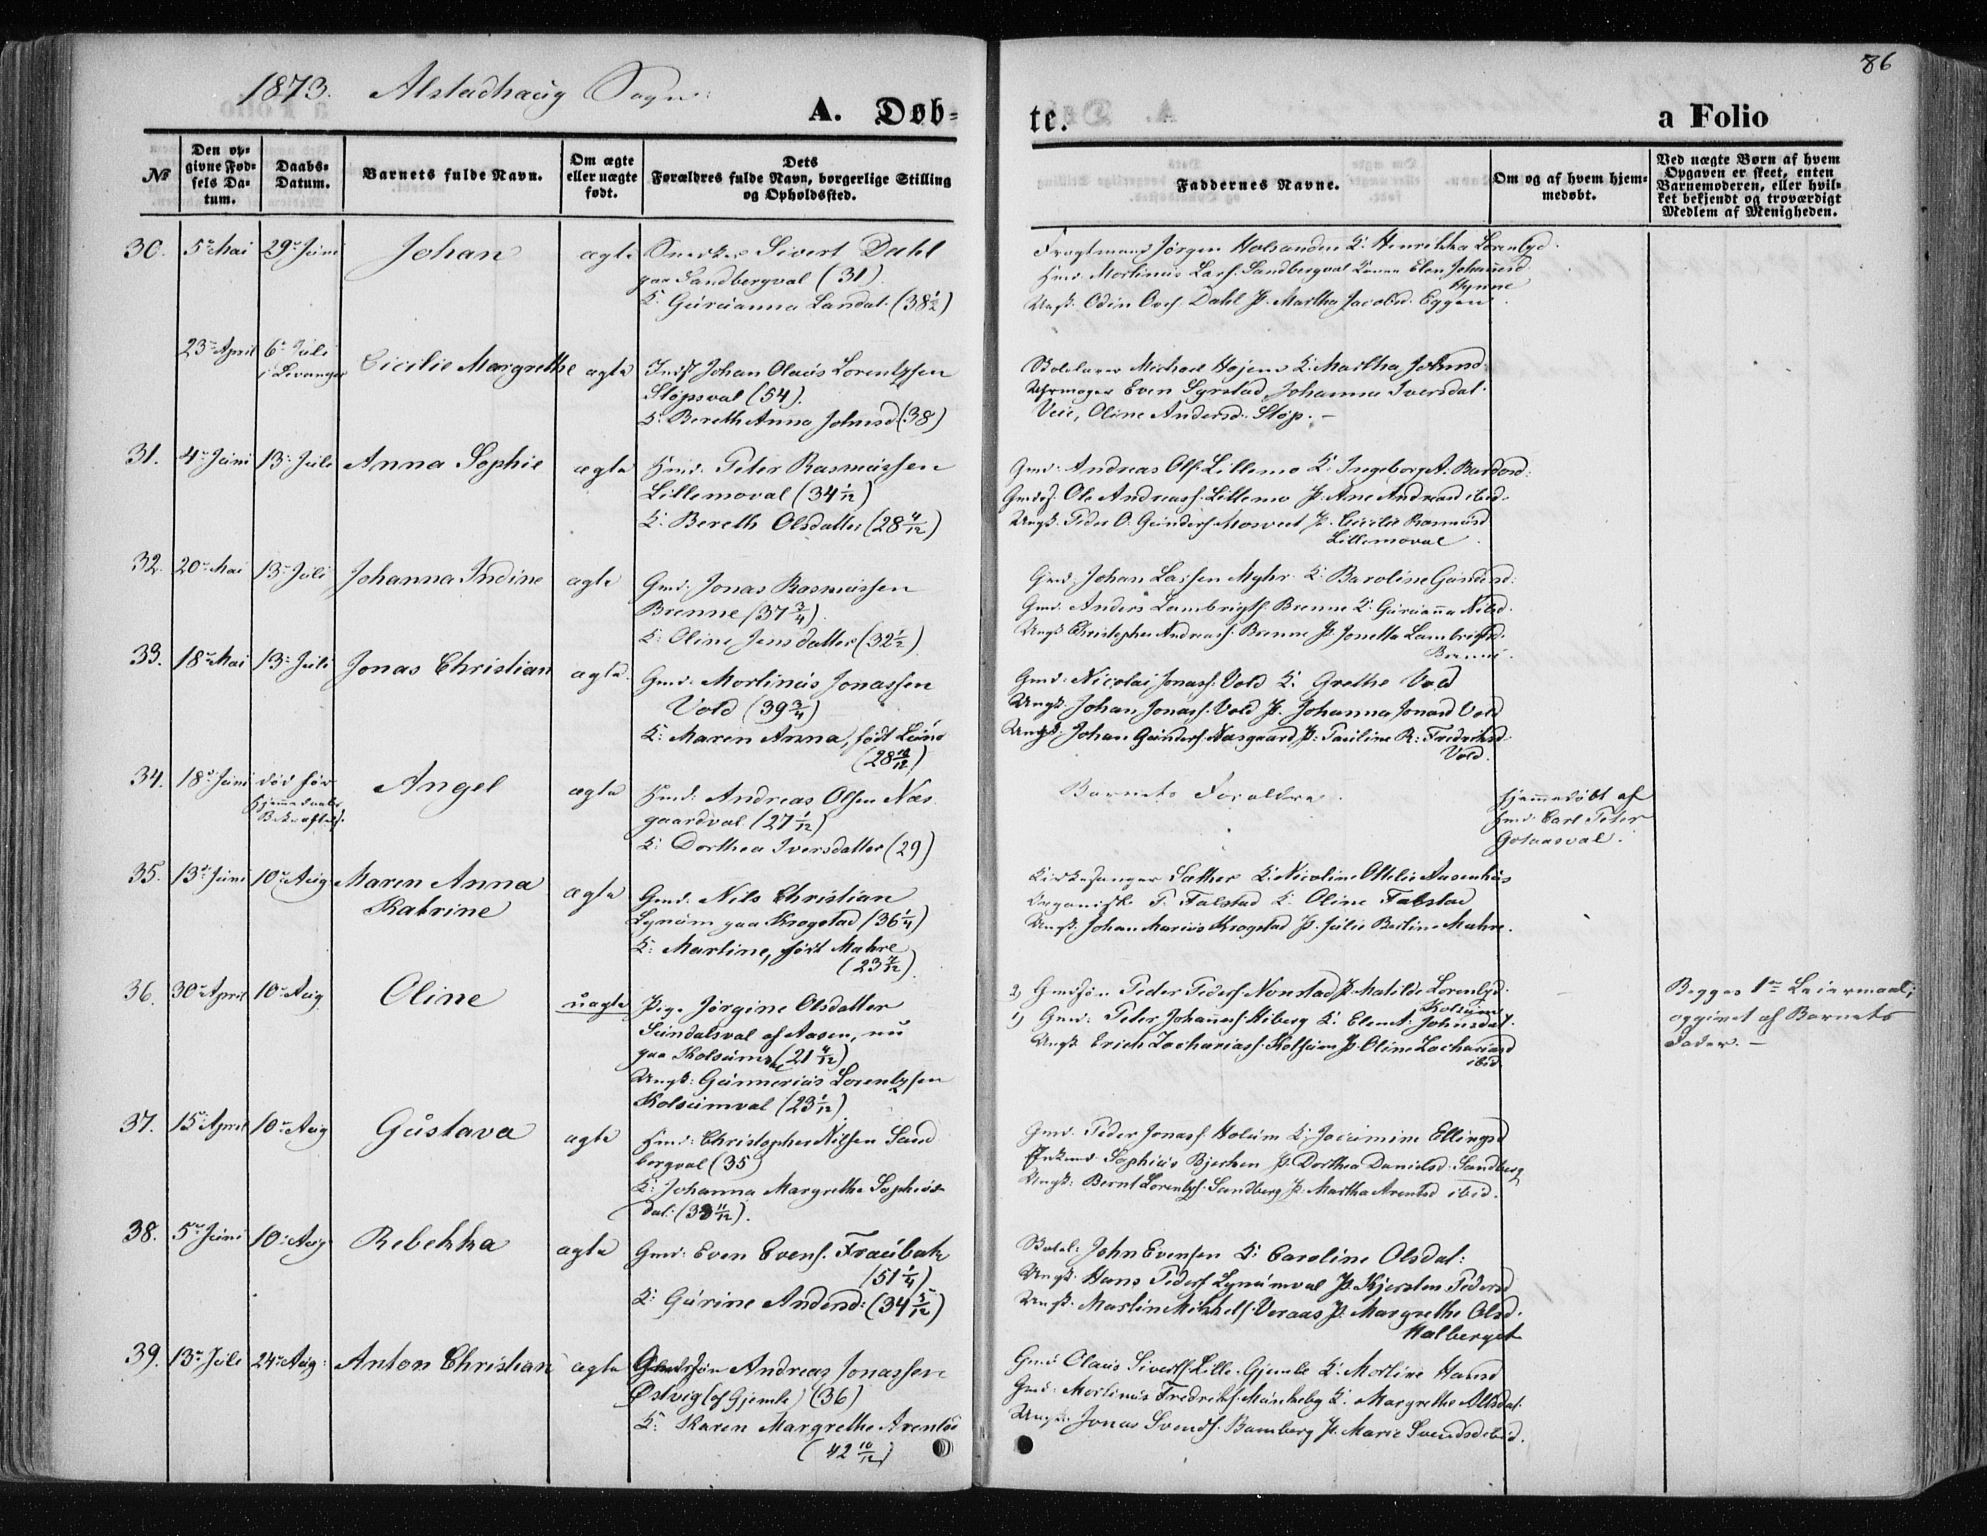 86
1873. Alstadhaug Sogn.
A. Døb-
te.
a Folio
No
Den op-
givne Fød-
sels Da-
tum.
Daabs-
Datum.
Barnets fulde Navn.
Om ægte
eller uægte
født.
Dets
Forældres fulde Navn, borgerlige Stilling
og Opholdssted.
Faddernes Navne.
Om og af hvem hjem-
medøbt.
Ved uægte Børn af hvem
Opgaven er skeet, enten
Barnemoderen, eller hvil-
ket bekjendt og troværdigt
Medlem af Menigheden.
30. 5te Mai 29de Juni Johan ægte Snedker Sivert Dahl
paa Sandbergval (31)
K: Guruanna Landat. (38 1/2)
Jørgen Holsanden K: Henrikka Lorentzd.
Hmd. Martinus Larss. Sandbergval Konen Elen Johannesd.
Hynne
Ungk. Odin Dahl P. Martha Jacobsd. Eggen.
23de April 6te Juli
i Levanger
Cicilie Margrethe ægte Indst Johan Olaus Lorentzsen
Støpsval (54).
K: Bereth Anna Johnsd (38)
Michael Hojem K: Martha Johnsd.
Uhrmager Even Syrstad, Johanna Iversdat.
Veie, Oline Andersd. Støp. –
31. 4de Juni 13de Juli Anna Sophie ægte Hmd. Peter Rasmussen
Lillemoval (34 1/12)
K: Bereth Olsdatter (28 4/12)
Gmd: Andreas Ols. Lillemo K: Ingeborg A. Bardosd:
Gmds. Ole Andreass. Lillemo P. Ane Andreasd ibid.
Ungk. Peder O. Gunders. Mosveet P. Cicilie Rasmusd
Lillemoval.
32. 20de Mai 13de Juli Johanna Indine ægte Gmd. Jonas Rasmussen
Brenne (37 3/4)
K: Oline Jensdatter (32 1/2)
Gmd. Johan Lassen Myhr K: Baroline Gundersd:
Gmd. Anders Lambrigts. Brenne K: Guruanna Nilsd.
Ungk Christopher Andreass. Brenne P. Jonetta Lambrigtsd.
Brenne.
33. 18de Mai 13de Juli Jonas Christian ægte Gmd. Martinus Jonassen
Vold (39 3/4)
K: Maren Anna, født Lund
(28 10/12)
Gmd: Nicolai Jonass. Vold K. Grethe Vold
Ungk. Johan Jonass. Vold P. Johanna Jonasd Vold
Ungk. Johan Gunders. Nasgaard P: Pauline R: Fredriksd.
Vold.
34. 18de Juni død før
Hjemmedaabs
Bekræftels.
Angel ægte Hmd. Andreas Olsen Nas
gaardval (27 1/12)
K: Dorthea Iversdatter (29)
Barnets Forældre.
Hjemmedøbt af
Hmd. Carl Peter
Gotaasval.
35. 13de Juni 10de Aug Maren Anna
Katrine
ægte Gmd. Nils Christian
Lynum paa Krogstad (36 1/4)
K: Martine, født Mahre
(23 7/12).
Kirkesanger Sather K: Nicoline Ottilie Aasenhus
Organist P. Falstad K: Oline Falstad
Ungk. Johan Marius Krogstad P. Julie Bertine Mahre.
36. 30de April 10de Aug. Oline uægte Pige Jørgine Olsdatter
Sundalsval af Aasen, nu
paa Kolsum (21 4/12)
Ungk: Gunnerius Lorentzsen
Kolsumval (23 1/12)
2) Gmdsøn Peder Peders. Nonstad P. Matilde Lorentzd.
Kolsum
1) Gmd: Peter Johanness. Hiberg K: Elen A: Johnsdat.
Ungk Erich Zachariass. Kolsum P. Oline Zachariasd
ibid.
Begges 1ste Leiermaal;
opgivet af Barnets
Fader. –
37. 15de April 10de Aug Gustava ægte Hmd: Christopher Nilssen Sand
bergval (35)
K: Johanna Margrethe Sophius-
dat: (33 11/12).
Gmd. Peder Jonass. Holum K: Jocumine Ellingsd
Enkemd Sophius Bjerken P: Dorthea Danielsd. Sandberg
Ungk: Bernt Lorentzs. Sandberg P. Martha Arentsd ibid.
38. 5te Juni 10de Aug Rebekka ægte Gmd: Even Evens. Fraubak
(51 1/4)
K: Gurine Andersd: (34 5/12)
John Evensen K: Caroline Olsdat:
Ungk. Hans Peders. Lynumval P. Kjersten Pedersd
Ungk. Martin Mikkels. Veraas P. Margrethe Olsd.
Halberget
39. 13de Juli 24de Aug: Anton Christian ægte Andreas Jonassen
Østvig (af Gjemle) (36)
K: Karen Margrethe Arentsd
(42 10/12)
Gmd Olaus Siverts. Lille-Gjemle K: Martine Hansd
Gmd: Martinus Fredriks. Munkeby K. Margrethe Olsdat.
Ungk. Jonas Svends. Bamberg P. Marie Svendsd ibid.